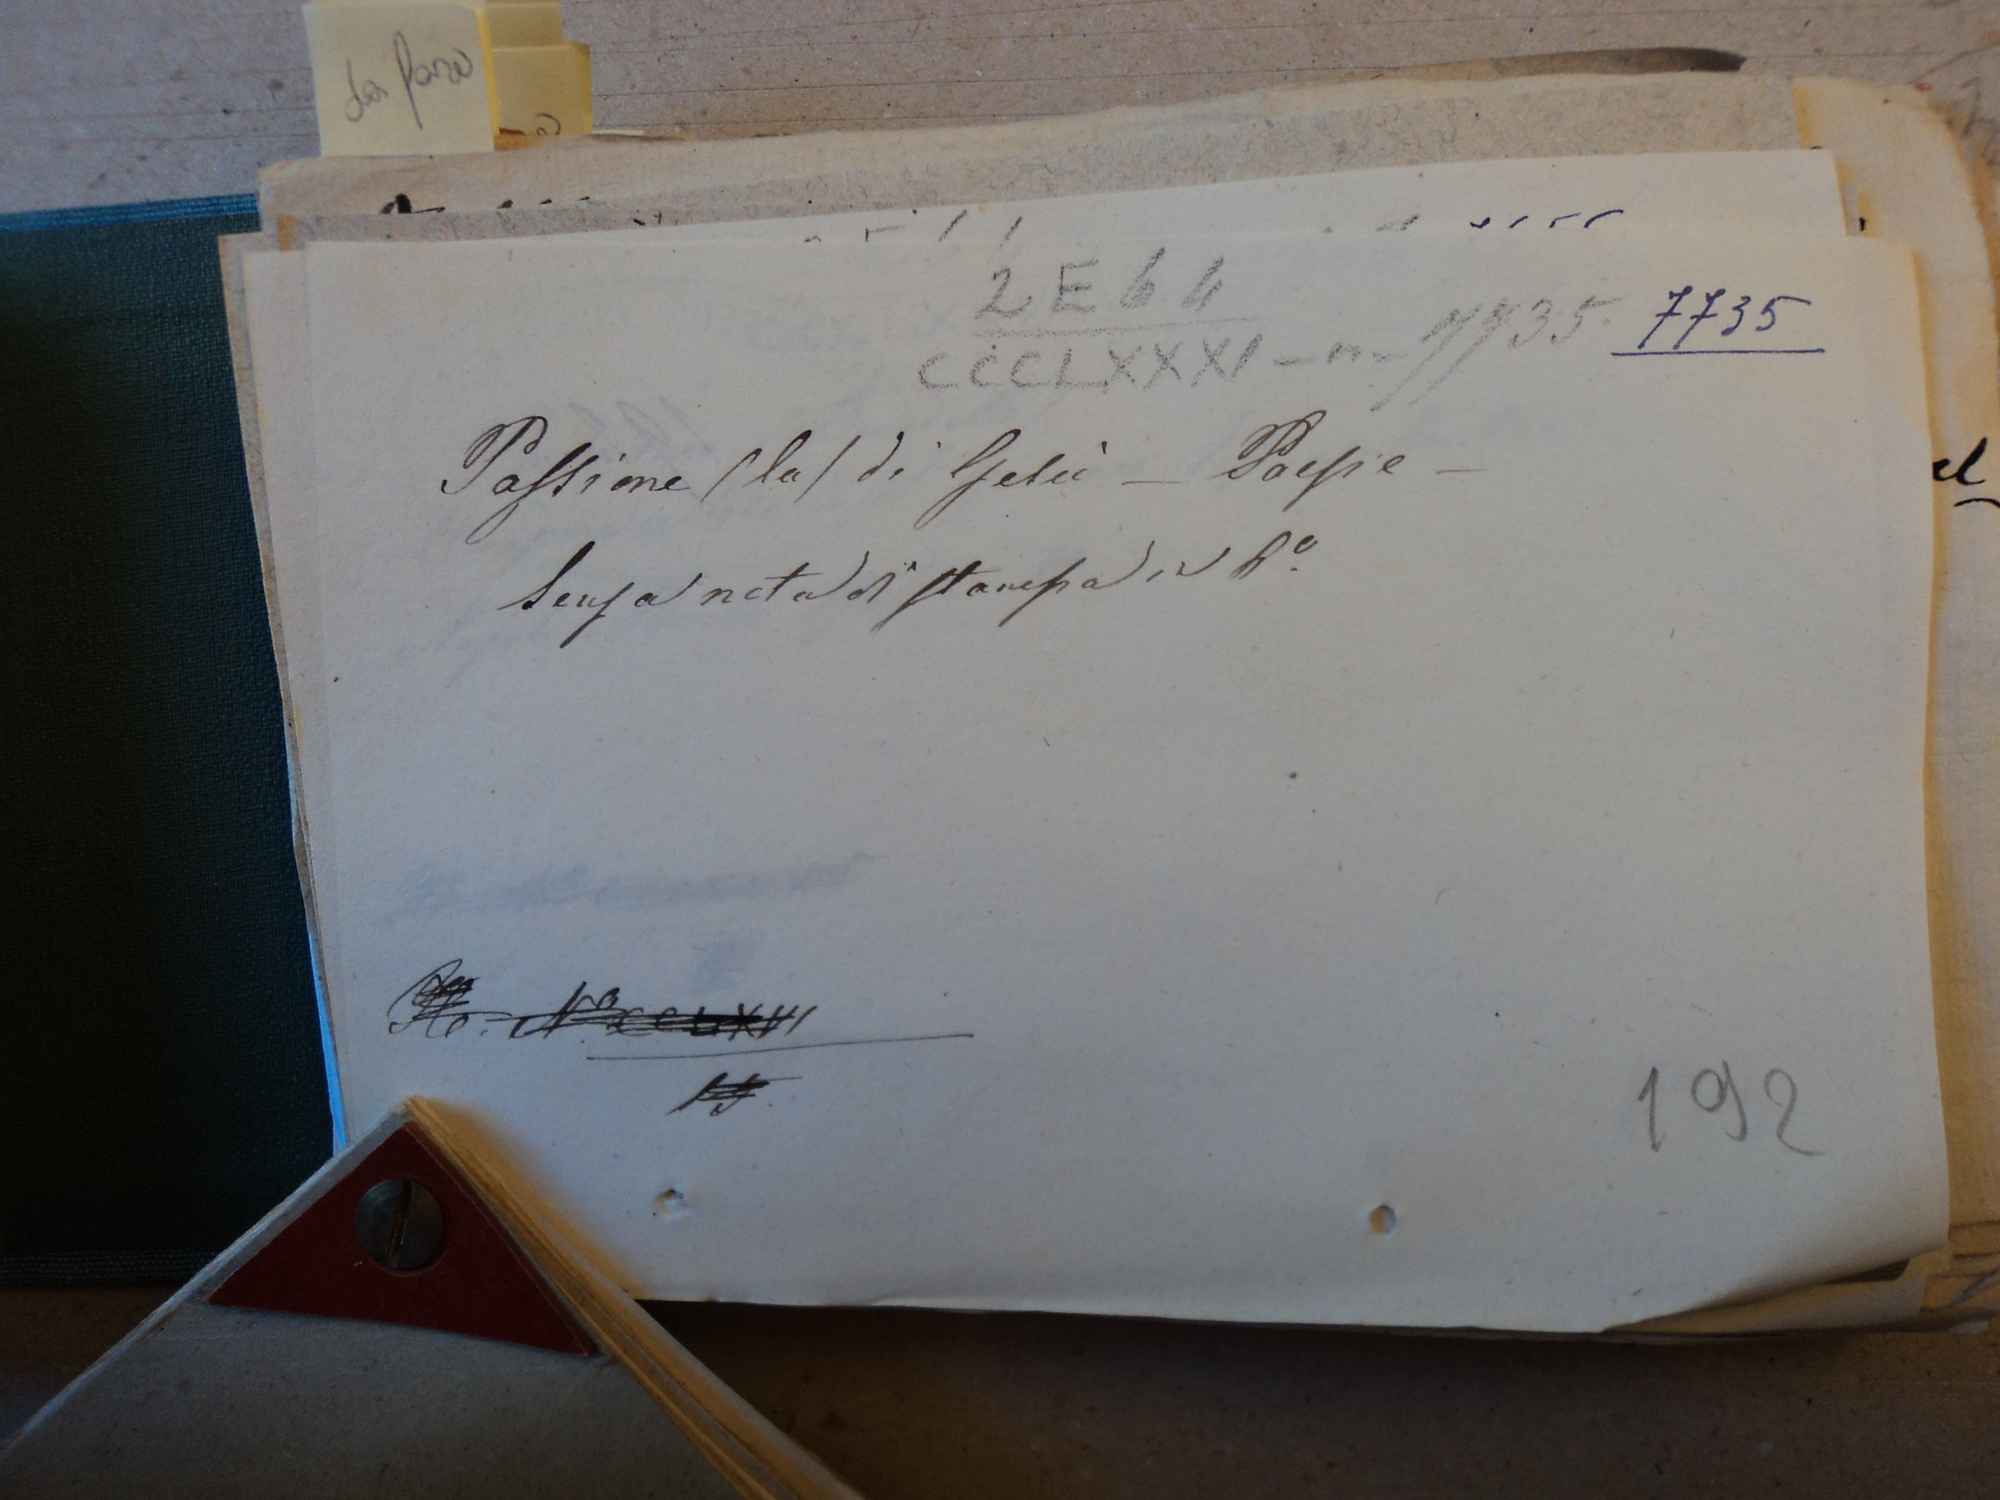 da fare
2 E 6 4
CCCLXXXI - n - 7735. 7735
Passione (la) di Gesù — Poesie —
Senza nota di stampa in 8º
192